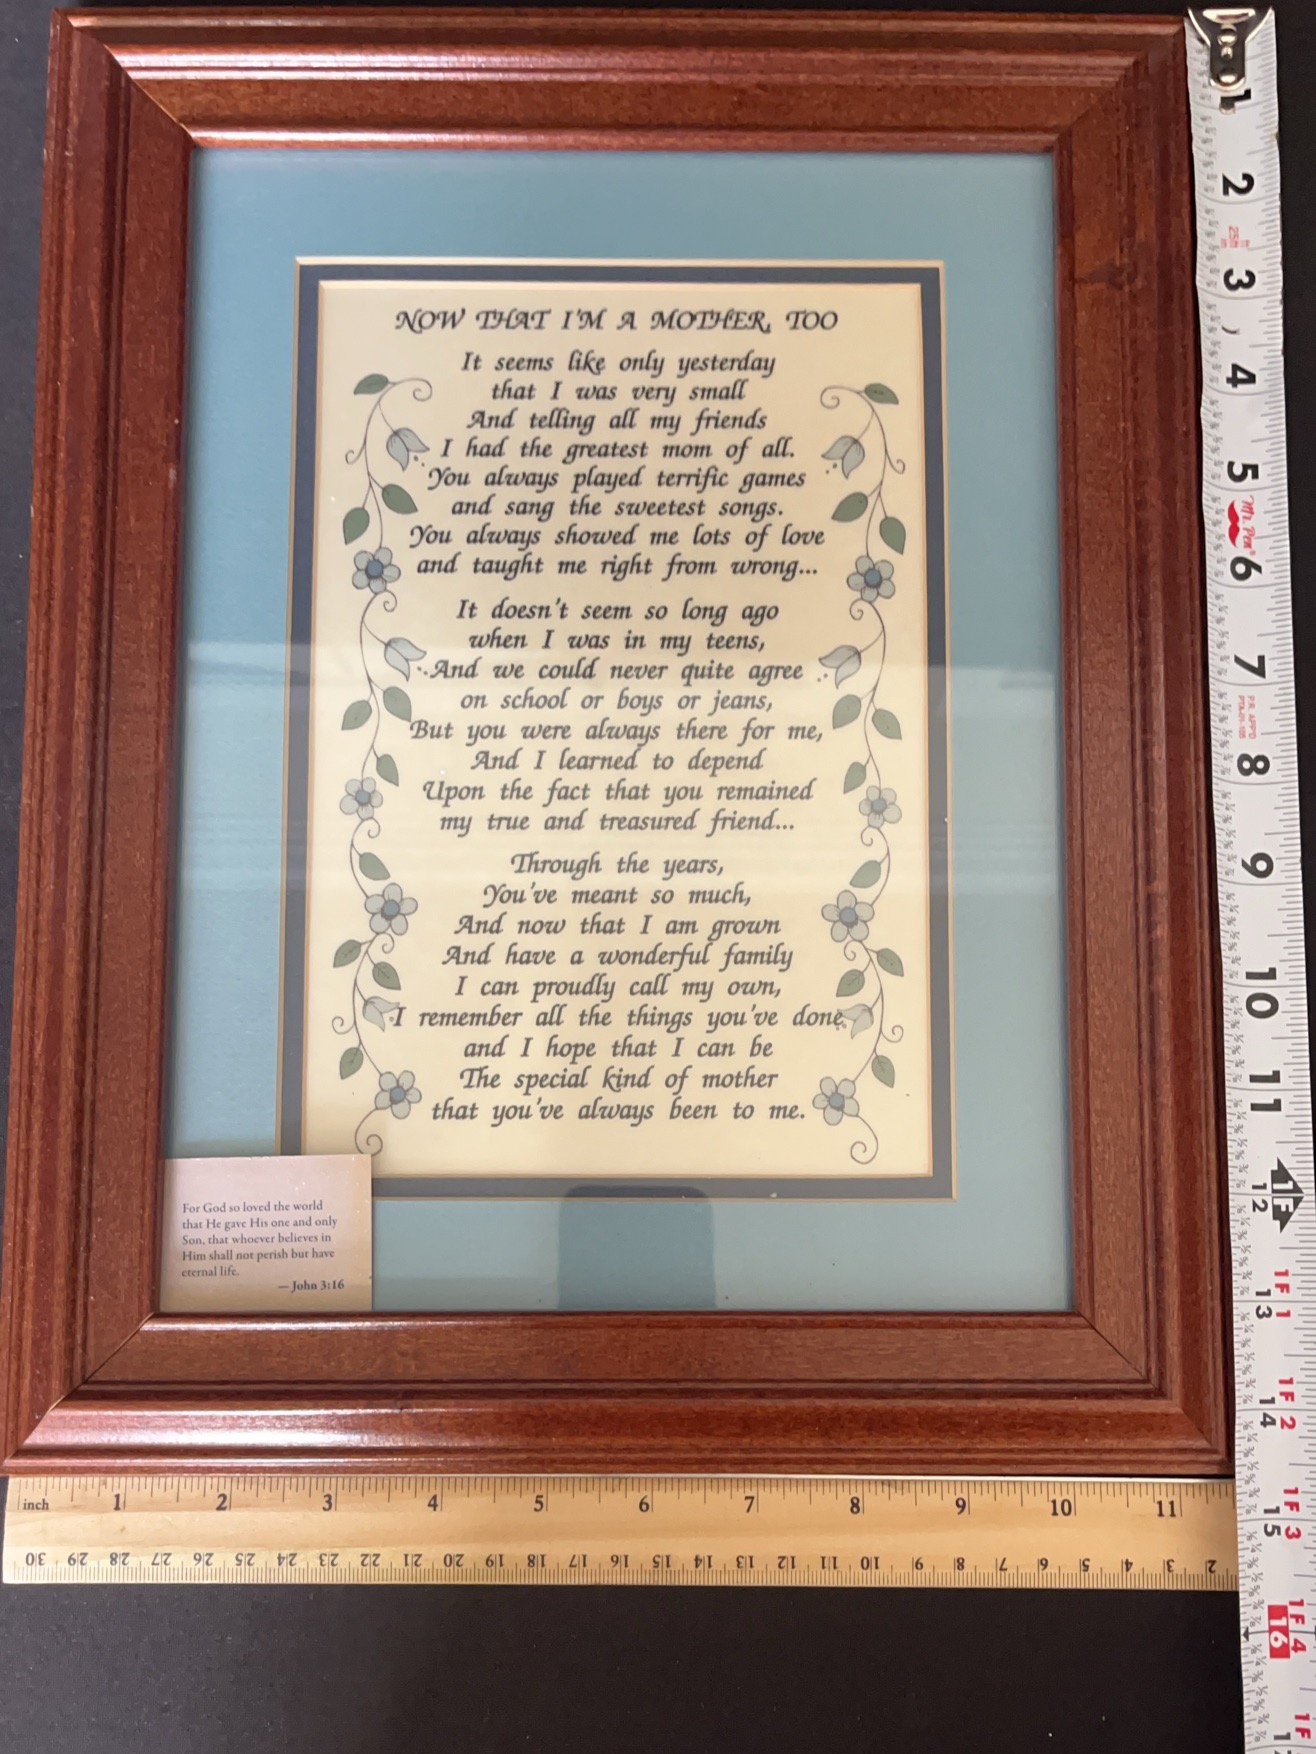 NOW THAT I'M A MOTHER, TOO
It seems like only yesterday
that I was very small
And telling all my friends
I had the greatest mom of all.
You always played terrific games
and sang the sweetest songs.
You always showed me lots of love
and taught me right from wrong...
It doesn't seem so long ago
when I was in my teens,
And we could never quite agree
on school or boys or jeans,
But you were always there for me,
And I learned to depend
Upon the fact that you remained
my true and treasured friend...
Through the years,
You've meant so much,
And now that I am grown
And have a wonderful family
I can proudly call my own,
I remember all the things you've done,
and I hope that I can be
The special kind of mother
that you've always been to me.
For God so loved the world
that He gave His one and only
Son, that whoever believes in
Him shall not perish but have
eternal life.
— John 3:16
inch 1 2 3 4 5 6 7 8 9 10 11
30 29 28 27 26 25 24 23 22 21 20 19 18 17 16 15 14 13 12 11 10 9 8 7 6 5 4 3 2
1
2
25ft
3
4
5
Mr. Pen
6
7
8
9
10
11
1F
12
1F 1
13
1F 2
14
1F 3
15
1F 4
16
1F